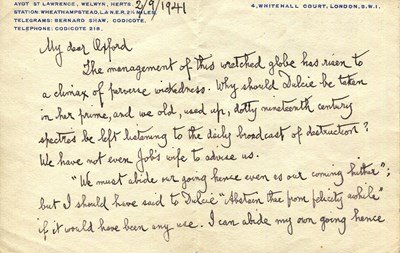 AYOT ST LAWRENCE, WELWYN, HERTS.
STATION: WHEATHAMPSTEAD, L.& N.E.R., 2¼ MILES.
TELEGRAMS: BERNARD SHAW, CODICOTE.
TELEPHONE: CODICOTE 218.
2/9/1941
4, WHITEHALL COURT, LONDON, S.W.1.
My dear Osford
The management of this wretched globe has risen to
a climax of perverse wickedness. Why should Dulcie be taken
in her prime, and we old, used up, dotty nineteenth century
spectres be left listening to the daily broadcast of destruction?
We have not even Job's wife to advise us.
"We must abide our going hence even as our coming hither";
but I should have said to Dulcie "Abstain thee from felicity awhile"
if it would have been any use. I can abide my own going hence